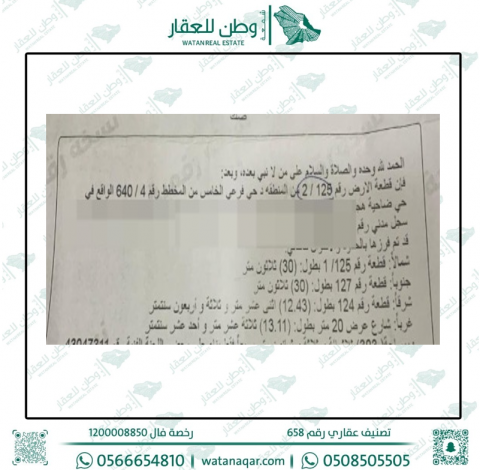 وطن للعقار
WATAN REAL ESTATE
الحمد لله وحده والصلاة والسلام على من لا نبي بعده، وبعد:
فإن قطعة الارض رقم 125 / 2 من المنطقه د حي فرعي الخامس من المخطط رقم 4 / 640 الواقع في
حي ضاحية
سجل مدني رقم
قد تم فرزها
شمالاً: قطعة رقم 125/ 1 بطول: (30) ثلاثون متر
جنوباً: قطعة رقم 127 بطول: (30) ثلاثون متر
شرقاً: قطعة رقم 124 بطول: (12.43) اثنى عشر متر و ثلاثة و أربعون سنتمتر
غرباً: شارع عرض 20 متر بطول: (13.11) ثلاثة عشر متر و أحد عشر سنتمتر
43047311
رخصة فال 1200008850
تصنيف عقاري رقم 658
0566654810 | watanaqar.com | 0508505505